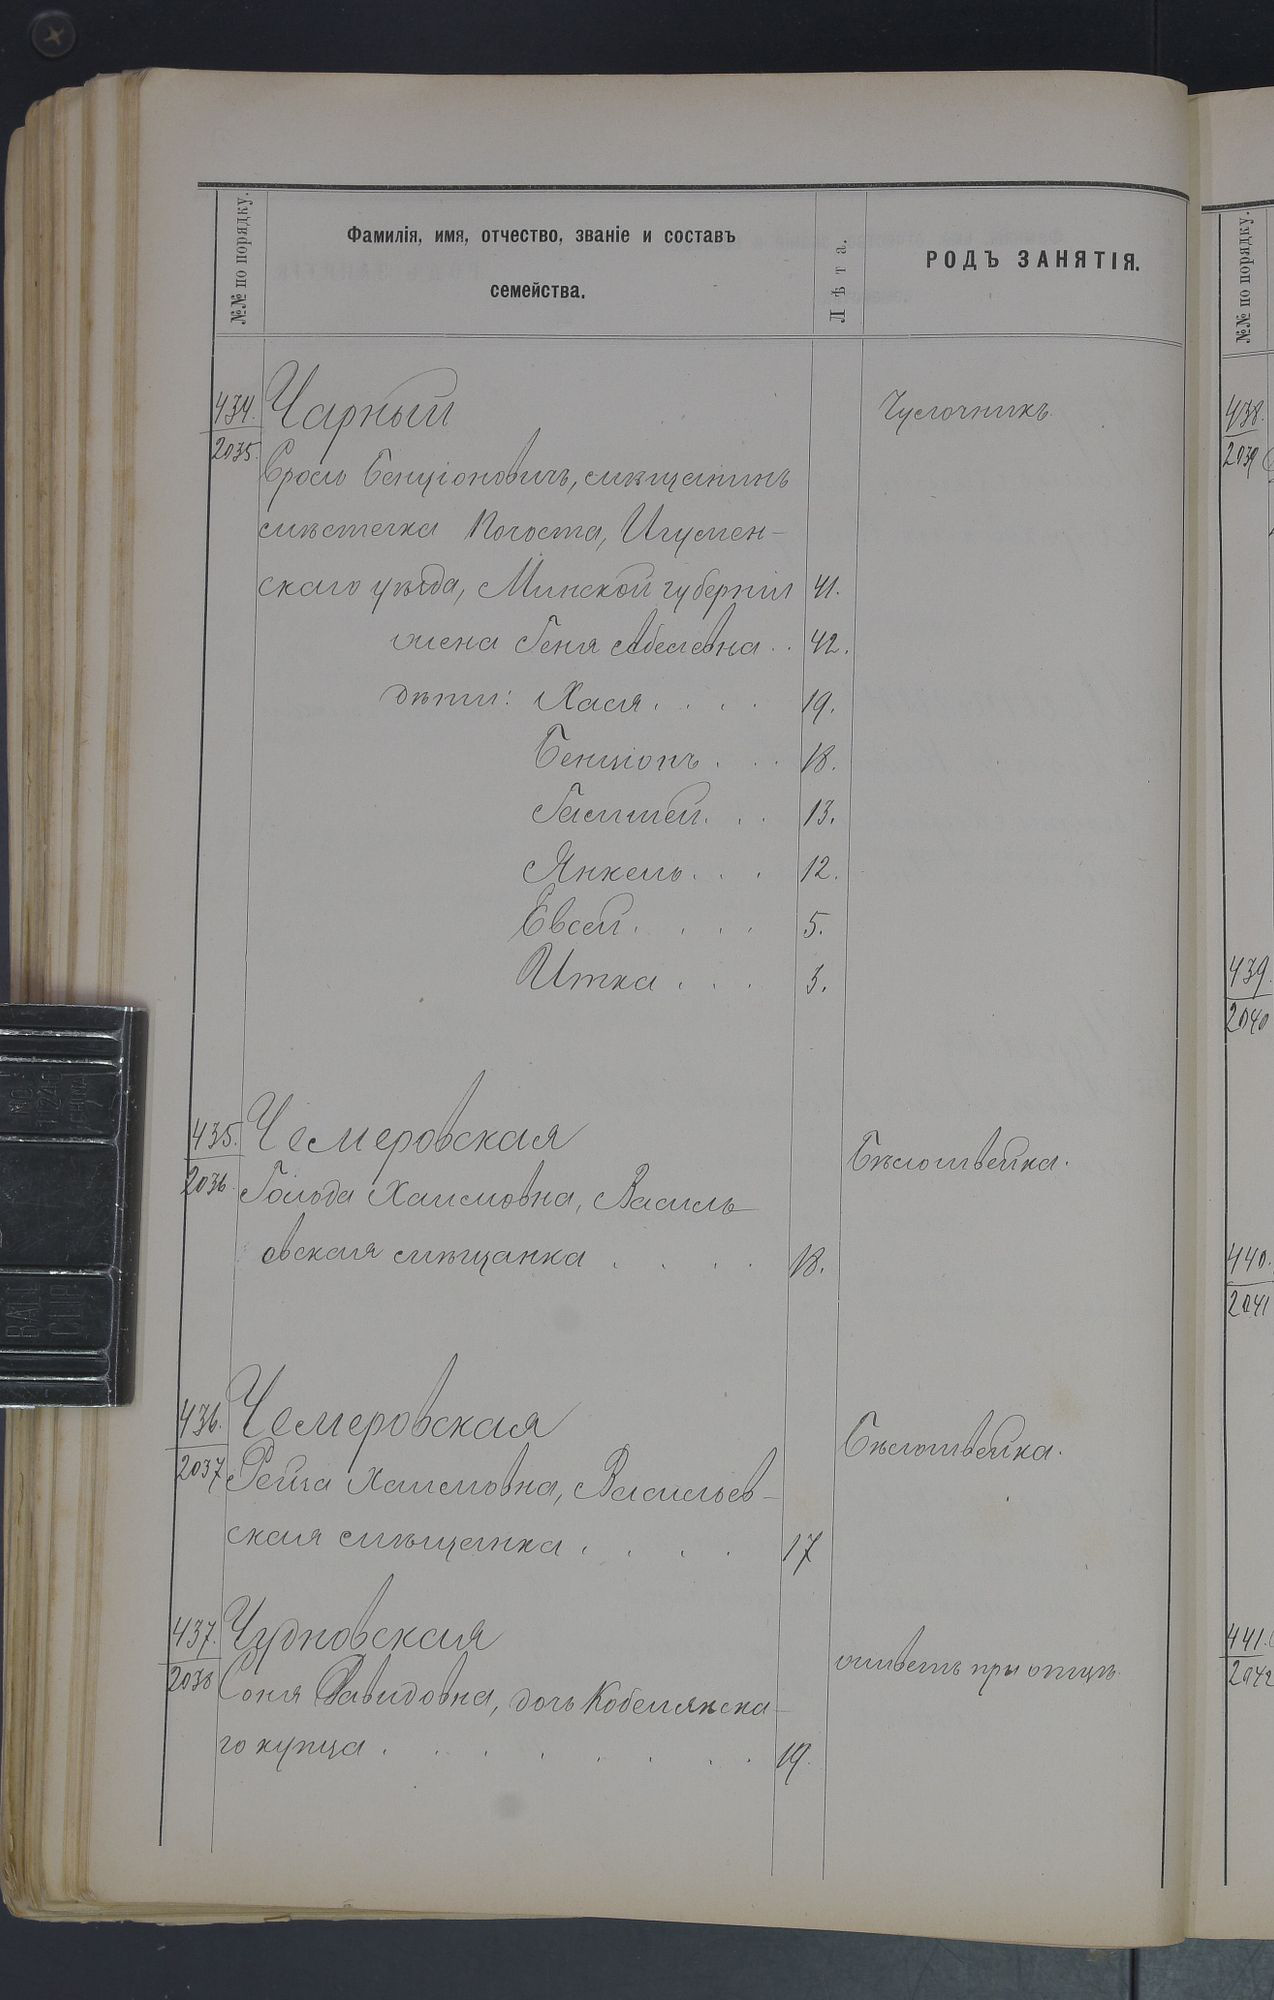 №№ по порядку.
Фамилія, имя, отчество, званіе и составъ
семейства.
Лѣта.
РОДЪ ЗАНЯТІЯ.
434.
2035.
Чарный
Чулочникъ.
Сроль Бенціоновичъ, мѣщанинъ
мѣстечка Погоста, Игумен-
скаго уѣзда, Минской губерніи 41.
жена Геня Абелевна . . 42.
дѣти: Хася . . . . 19.
Бенціонъ . . . 18.
. . . 13.
Янкель . . . 12.
Евсей . . . . 5.
Итка . . . 3.
435.
2036.
Чемеровская
Бѣлошвейка.
Гольда Хаимовна, Василь
овская мѣщанка . . . . 18.
436.
2037
Чемеровская
Бѣлошвейка.
Рейза Хаимовна, Васильев-
ская мѣщанка . . . . 17
437.
2038
Чудновская
живетъ при отцѣ
Соня Давидовна, дочь Кобелякска-
го купца . . . . . . . . 19.
№№ по порядку.
438.
2039
439.
2040
440.
2041
441.
2042